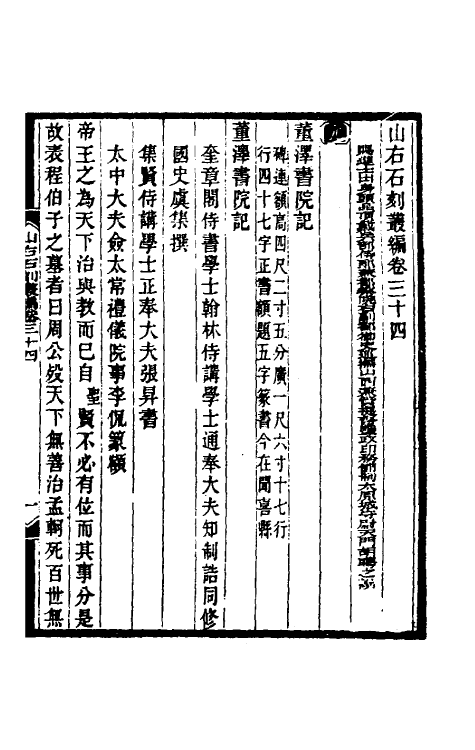 山右石刻叢編卷三十四
元
董澤書院記
碑連額高四尺二寸五分廣一尺六寸十七行
行四十七字正書額題五字篆書今在聞喜縣
董澤書院記
奎章閣侍書學士翰林侍講學士通奉大夫知制誥同修
國史虞集撰
集賢侍講學士正奉大夫張昇書
太中大夫僉太常禮儀院事李侃篆額
帝王之為天下治與教而已自聖賢不必有位而其事分是
故表程伯子之墓者曰周公歿天下無善治孟軻死百世無
山右石刻叢編卷三十四
一